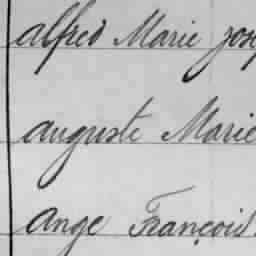 alfred Marie jose
auguste Marie
ange François